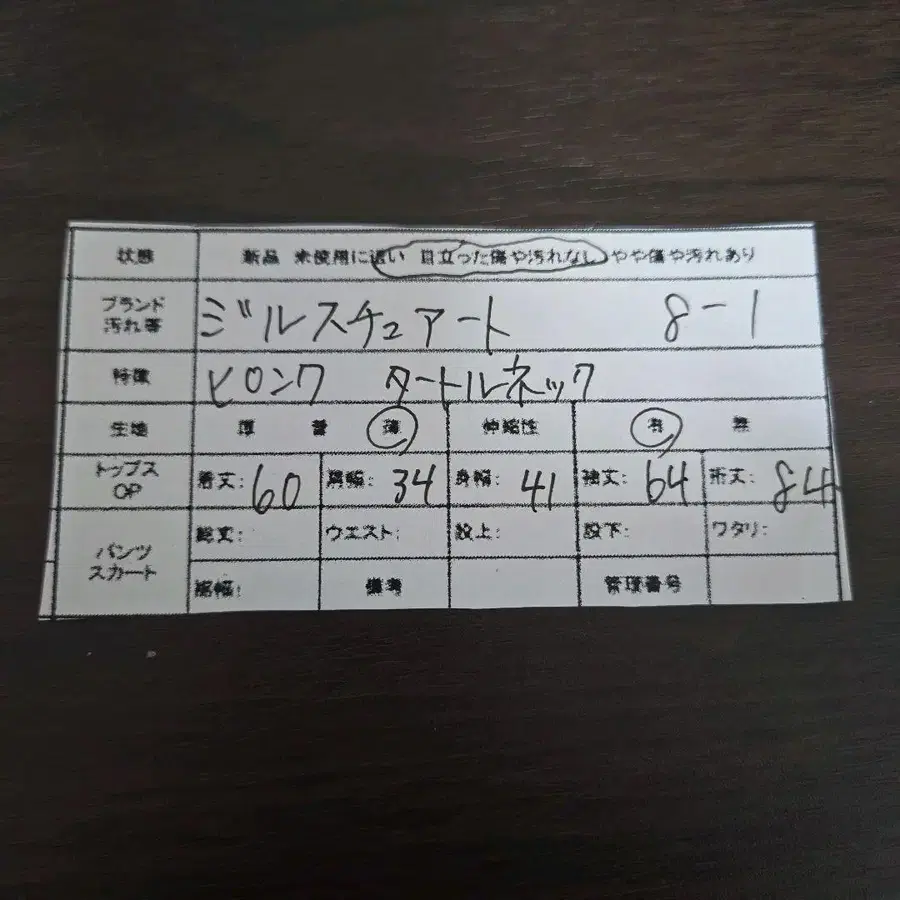 状態 新品 未使用に近い 目立った傷や汚れなし やや傷や汚れあり
ブランド 汚れ等 ジルスチュアート 8-1
特徴 ピンク タートルネック
生地 厚 普 薄 伸縮性 有 無
トップス OP 着丈:60 肩幅:34 身幅:41 袖丈:64 裄丈:84
パンツ スカート 総丈: ウエスト: 股上: 股下: ワタリ:
裾幅: 備考 管理番号